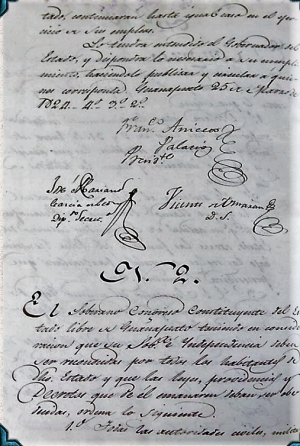 tado, continuarán hasta igual caso en el ejer-
cicio de sus empleos.
Lo tendrá entendido el Gobernador del
Estado, y dispondrá lo necesario a su cumpli-
miento, haciendolo publicar y circular a quie-
nes corresponda. Guanajuato 25 de Marzo de
1824. 4º 3º 2º
Palacio
Presid.te
José Mariano
García de Leon
Dip.do Secret.o
D. S.
N. 2.
El Soberano Congreso Constituyente del Es
tado libre de Guanajuato teniendo en conside
racion que su Sob.ª é Independencia deben
ser reconocidas por todos los habitantes de
dho. Estado y que las leyes, providencias y
Decretos que de el emanaren sean ser obe
decidas, ordena lo siguiente
1.º Todas las autoridades civiles, milita